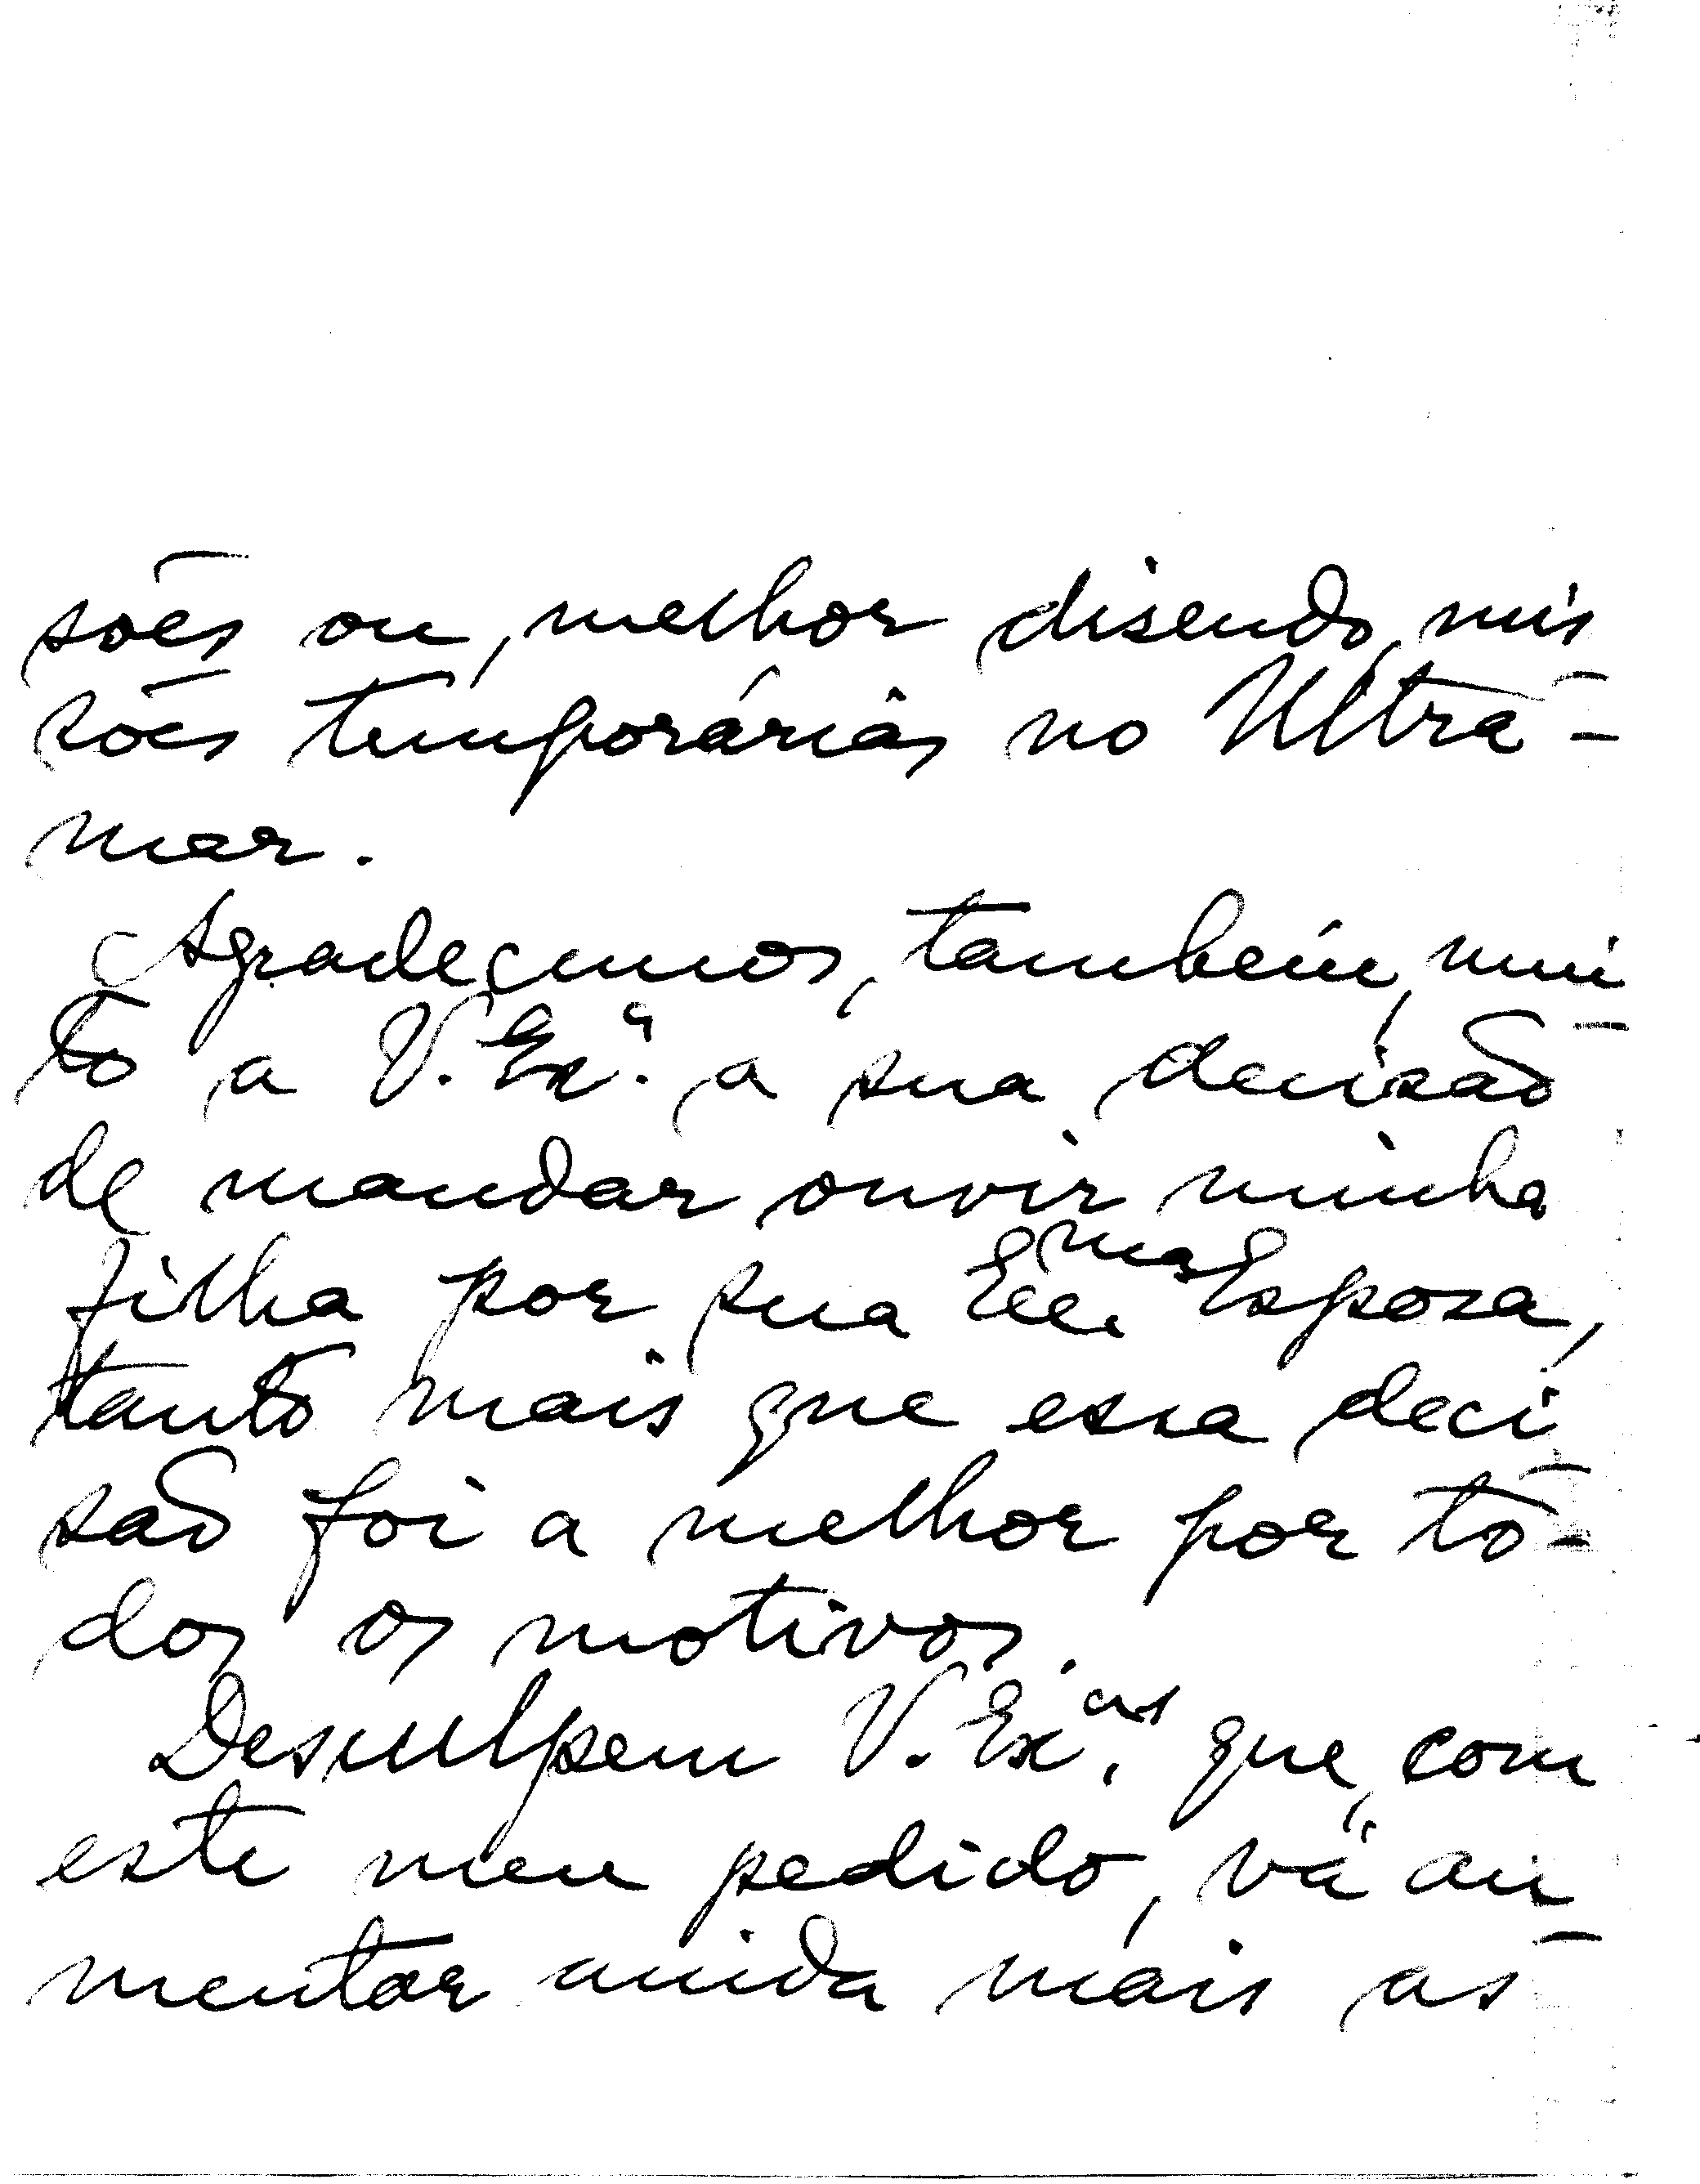 sões ou, melhor disendo, mis
sões temporárias no Ultra-
mar.
Agradecemos, também, mui
to a V. Exª. a sua decisão
de mandar ouvir minha
filha por sua Ex.ma Esposa,
tanto mais que essa deci
são foi a melhor por to-
dos os motivos.
Desculpem V. Ex.as que, com
este meu pedido, vá au
mentar ainda mais as